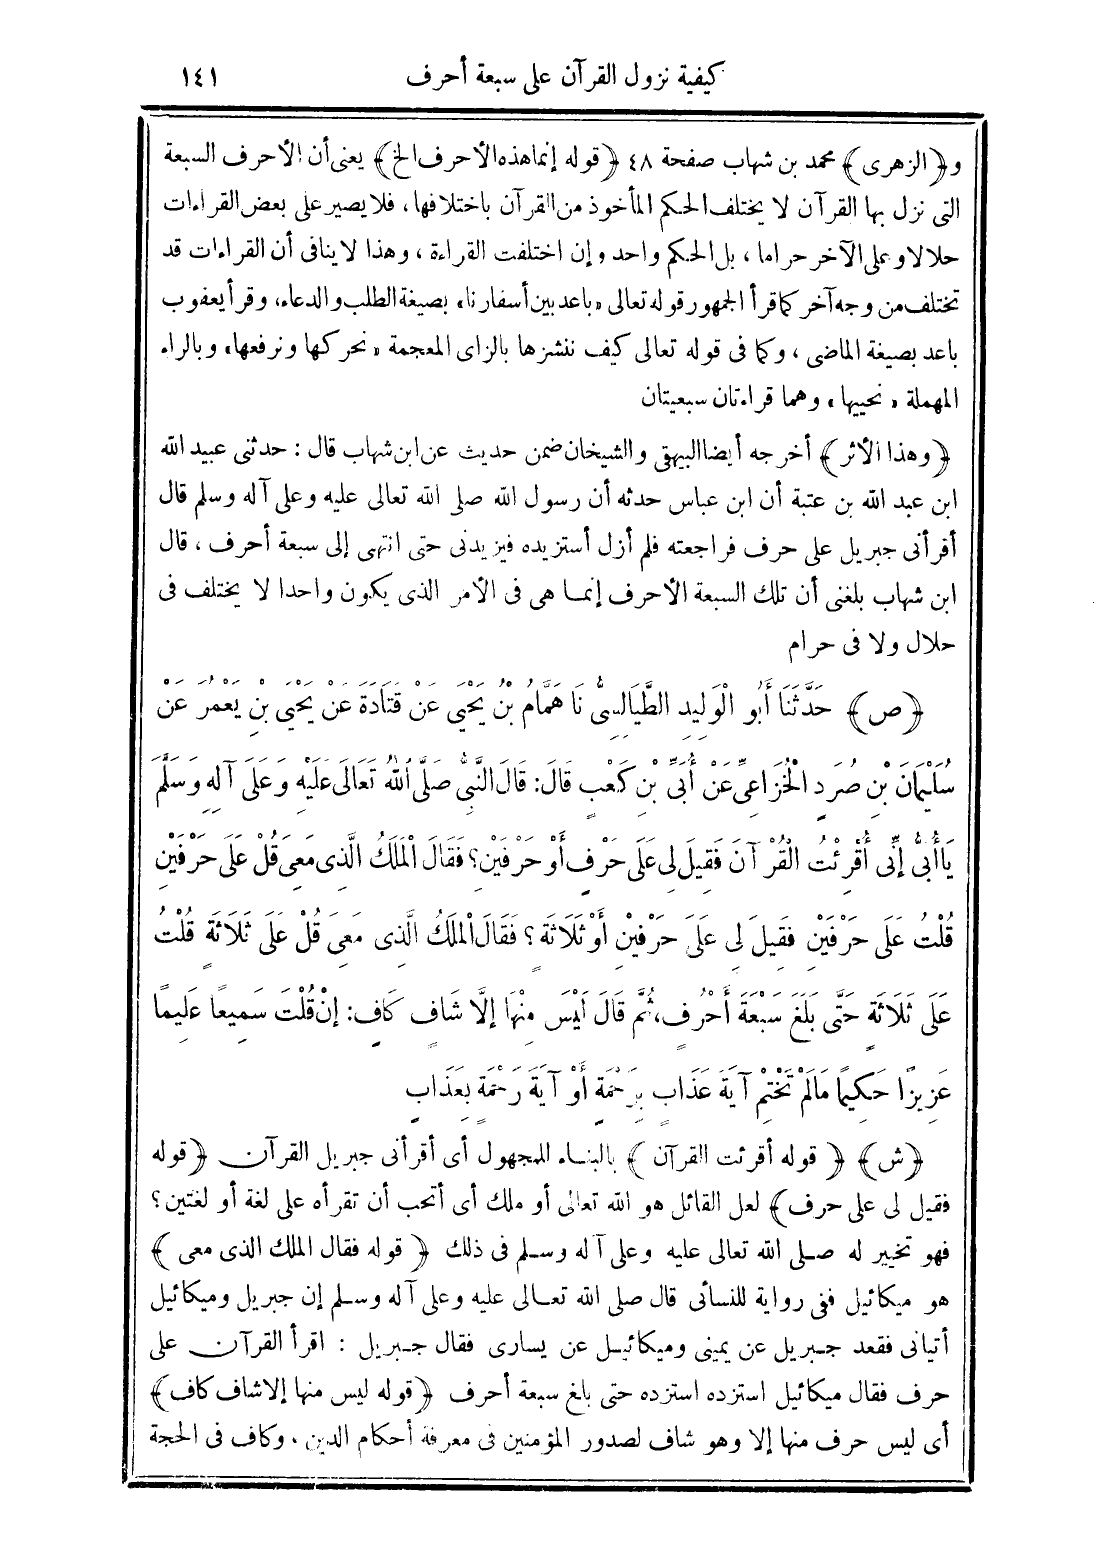 كيفية نزول القرآن على سبعة أحرف ١٤١
و﴿الزهرى﴾ محمد بن شهاب صفحة ٤٨ ﴿قوله إنما هذه الأحرف الخ﴾ يعنى أن الأحرف السبعة
التى نزل بها القرآن لا يختلف الحكم المأخوذ من القرآن باختلافها، فلا يصير على بعض القراءات
حلالا وعلى الآخر حراما، بل الحكم واحد وإن اختلفت القراءة، وهذا لا ينافى أن القراءات قد
تختلف من وجه آخر كما قرأ الجمهور قوله تعالى «باعد بين أسفارنا» بصيغة الطلب والدعاء، وقرأ يعقوب
باعد بصيغة الماضى، وكما فى قوله تعالى كيف ننشزها بالزاى المعجمة «نحركها ونرفعها» وبالراء
المهملة «نحييها» وهما قراءتان سبعيتان
﴿وهذا الأثر﴾ أخرجه أيضا البيهقى والشيخان ضمن حديث عن ابن شهاب قال: حدثنى عبيد الله
ابن عبد الله بن عتبة أن ابن عباس حدثه أن رسول الله صلى الله تعالى عليه وعلى آله وسلم قال
أقرأنى جبريل على حرف فراجعته فلم أزل أستزيده فيزيدنى حتى انتهى إلى سبعة أحرف، قال
ابن شهاب بلغنى أن تلك السبعة الأحرف إنما هى فى الأمر الذى يكون واحدا لا يختلف فى
حلال ولا فى حرام
﴿ص﴾ حَدَّثَنَا أَبُو الْوَلِيدِ الطَّيَالِسِىُّ نَا هَمَّامُ بْنُ يَحْيَى عَنْ قَتَادَةَ عَنْ يَحْيَى بْنِ يَعْمُرَ عَنْ
سُلَيْمَانَ بْنِ صُرَدٍ الْخُزَاعِىِّ عَنْ أُبَىِّ بْنِ كَعْبٍ قَالَ: قَالَ النَّبِىُّ صَلَّى اللهُ تَعَالَى عَلَيْهِ وَعَلَى آلِهِ وَسَلَّمَ
يَا أُبَىُّ إِنِّى أُقْرِئْتُ الْقُرْآنَ فَقِيلَ لِى عَلَى حَرْفٍ أَوْ حَرْفَيْنِ؟ فَقَالَ الْمَلَكُ الَّذِى مَعِى قُلْ عَلَى حَرْفَيْنِ
قُلْتُ عَلَى حَرْفَيْنِ فَقِيلَ لِى عَلَى حَرْفَيْنِ أَوْ ثَلَاثَةٍ؟ فَقَالَ الْمَلَكُ الَّذِى مَعِى قُلْ عَلَى ثَلَاثَةٍ قُلْتُ
عَلَى ثَلَاثَةٍ حَتَّى بَلَغَ سَبْعَةَ أَحْرُفٍ، ثُمَّ قَالَ لَيْسَ مِنْهَا إِلَّا شَافٍ كَافٍ: إِنْ قُلْتَ سَمِيعًا عَلِيمًا
عَزِيزًا حَكِيمًا مَا لَمْ تَخْتِمْ آيَةَ عَذَابٍ بِرَحْمَةٍ أَوْ آيَةَ رَحْمَةٍ بِعَذَابٍ
﴿ش﴾ ﴿قوله أقرئت القرآن﴾ بالبناء للمجهول أى أقرأنى جبريل القرآن ﴿قوله
فقيل لى على حرف﴾ لعل القائل هو الله تعالى أو ملك أى أتحب أن تقرأه على لغة أو لغتين؟
فهو تخيير له صلى الله تعالى عليه وعلى آله وسلم فى ذلك ﴿قوله فقال الملك الذى معى﴾
هو ميكائيل ففى رواية للنسائى قال صلى الله تعالى عليه وعلى آله وسلم إن جبريل وميكائيل
أتيانى فقعد جبريل عن يمينى وميكائيل عن يسارى فقال جبريل : اقرأ القرآن على
حرف فقال ميكائيل استزده استزده حتى بلغ سبعة أحرف ﴿قوله ليس منها إلا شاف كاف﴾
أى ليس حرف منها إلا وهو شاف لصدور المؤمنين فى معرفة أحكام الدين، وكاف فى الحجة